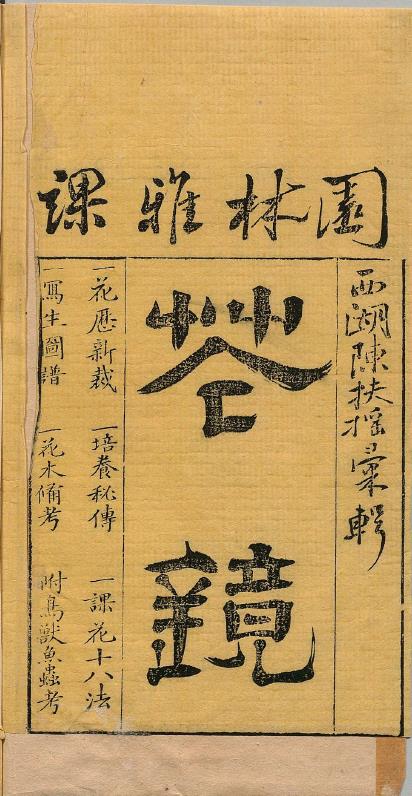 園林雅課
西湖陳扶摇彙輯
花鏡
一花歷新裁 一培養秘傳 一課花十八法
一寫生圖譜 一花木備考 附鳥獸魚蟲考